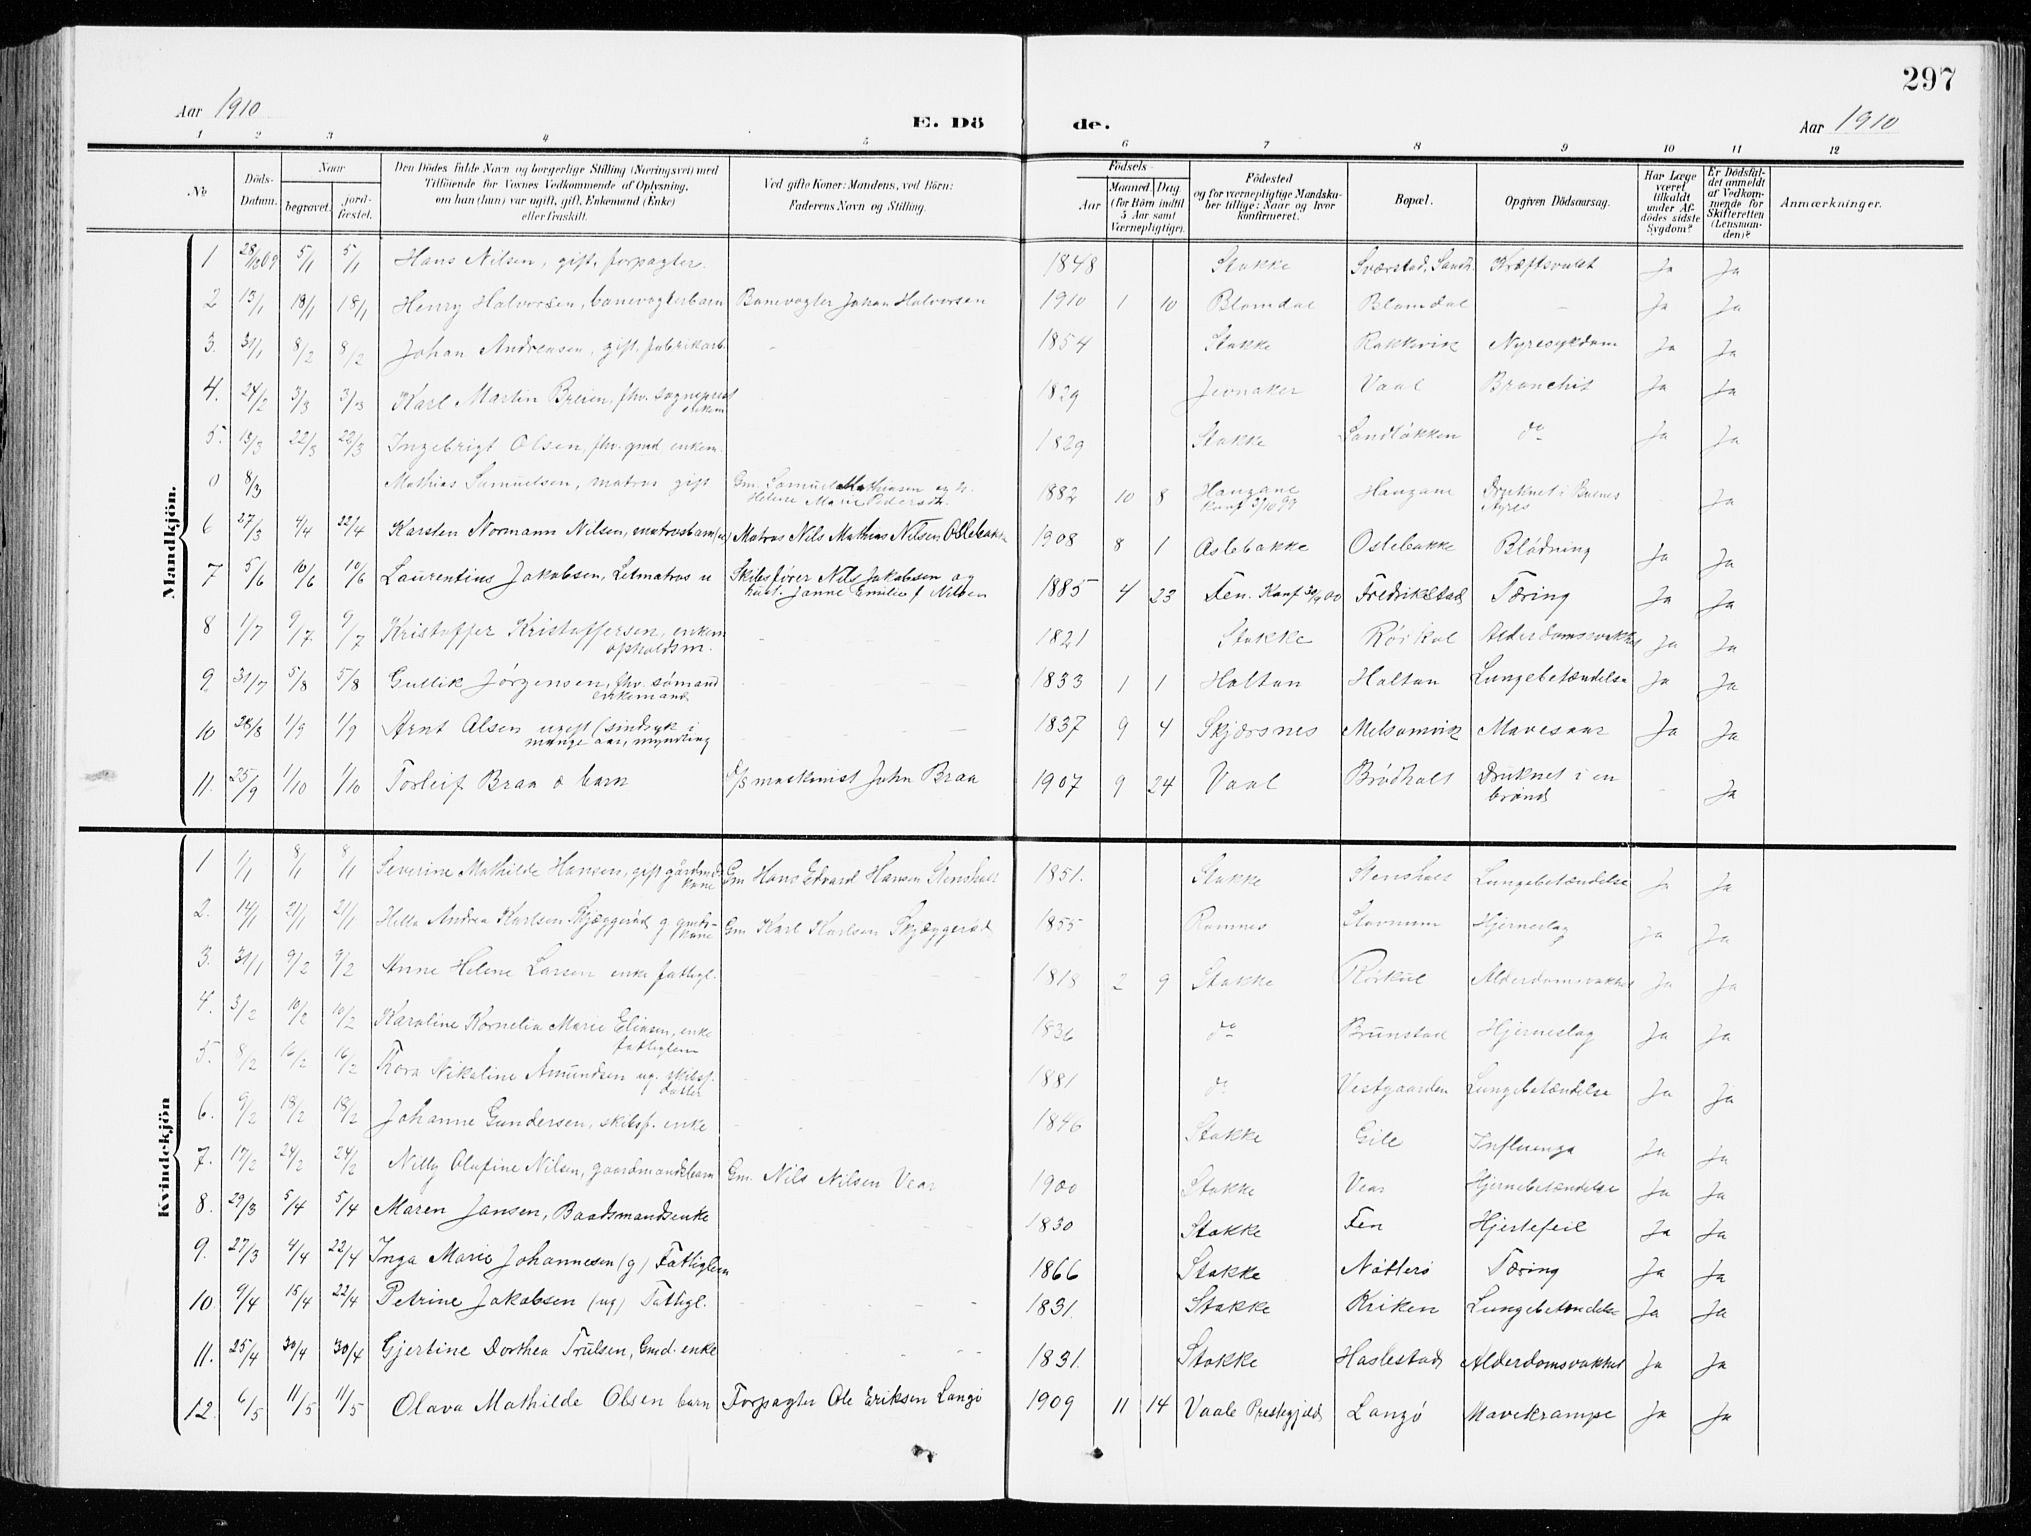 297
Aar 1910
E. Dö de.
Aar 1910
1 2 3 4 5 6 7 8 9 10 11 12
No
Döds-Datum.
Naar
begravet.
jord-fæstet.
Den Dödes fulde Navn og borgerlige Stilling (Næringsvei) med
Tilföiende for Voxnes Vedkommende af Oplysning,
om han (hun) var ugift, gift, Enkemand (Enke)
eller fraskilt.
Ved gifte Koner: Mandens, ved Börn:
Faderens Navn og Stilling.
Födsels-
Aar
Maaned. Dag
(for Börn indtil
5 Aar samt
Værnepligtige).
Födested
og for værnepligtige Mandska-
ber tillige: Naar og hvor
konfirmeret.
Bopæl.
Opgiven Dödsaarsag.
Har Læge
været
tilkaldt
under Af-
dödes sidste
Sygdom?
Er Dödsfal-
det anmeldt
af Vedkom-
mende for
Skifteretten
(Lensman-
den)?
Anmærkninger.
Mandkjön.
1 28/12 09 5/1 5/1 Hans Nilsen, gift, forpagter. 1848 Stokke Sværstad, Sandh. Kræftsvulst Ja Ja
2 13/1 18/1 18/1 Henry Halvorsen, banevogterbarn Banevogter Johan Halvorsen 1910 1 10 Blomdal Blomdal — Ja Ja
3. 31/1 8/2 8/2 Johan Andreasen, gift, fabrikarb. 1854 Stokke Rakkevik Nyresygdom Ja Ja
4. 24/2 3/3 3/3 Karl Martin Breien, fhv. sogneprest
enkem 1829 Jevnaker Vaal Bronchit Ja Ja
5. 15/3 22/3 22/3 Ingebrigt Olsen, fhv. gmd enkem. 1829 Stokke Sandløkken do Ja Ja
0 8/3 Mathias Samuelsen, matros gift Gm. Samuel Mathiasen og h.
Helene Marie Pedersdtr. 1882 10 8 Haugane
Konf 2/10 98 Haugane Druknet i Buenos
Ayres Ja
6 27/3 4/4 22/4 Karsten Normann Nilsen, matrosbarn Matros Nils Mathias Nilsen Oslebakke 1908 8 1 Oslebakke Oslebakke Blødning Ja Ja
7 5/6 10/6 10/6 Laurentius Jakobsen, Letmatros u Skibsfører Nils Jakobsen og
hust. Janne Emilie f Nilsen 1885 4 23 Fen. Konf 30/9 00 Fredrikstad Tæring Ja Ja
8 1/7 9/7 9/7 Kristoffer Kristoffersen, enkem
opholdsm. 1821 Stokke Rørkol Alderdomssvakhet Ja Ja
9 31/7 5/8 5/8 Gullik Jørgensen, fhv. sømand
enkemand 1833 1 1 Holtan Holtan Lungebetændelse Ja Ja
10 28/8 1/9 1/9 Arnt Olsen ugift (sindsyk i
mange aar, myndling 1837 9 4 Skjærsnes Melsomvik Mavesaar Ja Ja
11. 25/9 1/10 1/10 Torleif Braa o barn d/s maskinist John Braa 1907 9 24 Vaal Brødholt Druknet i en
brønd - Ja
Kvindekjön
1 1/1 8/1 8/1 Severine Mathilde Hansen, gift gårdmd.
kone Gm Hans Edvard Hansen Stensholt 1851. Stokke Stensholt Lungebetændelse Ja Ja
2. 14/1 21/1 21/1 Hella Andrea Karlsen Skjæggerød g gmds-
kone Gm Karl Karlsen Skjæggerød 1855 Ramnes Stavnum Hjerneslag Ja Ja
3. 31/1 9/2 9/2 Anne Helene Larsen enke fattigl. 1818 2 9 Stokke Rørkol Alderdomsvakhet Ja Ja
4. 3/2 10/2 10/2 Karoline Kornelia Marie Eliasen, enke
fattiglem 1836 do Brunstad Hjerneslag Ja Ja
5. 8/2 16/2 16/2 Thora Nikoline Amundsen ug. skibsf.
datter 1881 do Vestgaarden Lungebetændelse Ja Ja
6. 9/2 18/2 18/2 Johanne Gundersen, skibsf. enke 1846 Stokke Gile Influenza Ja Ja
7. 17/2 24/2 24/2 Nilly Olufine Nilsen, gaardmandsbarn Gm. Nils Nilsen Vear 1900 Stokke Vear Hjernebetændelse Ja Ja
8. 29/3 5/4 5/4 Maren Jansen, Baadsmandsenke 1830 Stokke Fen Hjertefeil Ja Ja
9. 27/3 4/4 22/4 Inga Marie Johannesen (g) Fattiglem 1866 Stokke Nøtterø Tæring Ja Ja
10 9/4 15/4 22/4 Petrine Jakobsen (ug) Fattigl. 1831. Stokke Kriken Lungebetændelse Ja Ja
11. 25/4 30/4 30/4 Gjertine Dorthea Trulsen, Gmd. enke 1831. Stokke Haslestad Alderdomsvakhet Ja Ja
12. 6/5 11/5 11/5 Olava Mathilde Olsen barn Forpagter Ole Eriksen Langø 1909 11 14 Vaale Prestegjeld Langø Mavekrampe Ja Ja